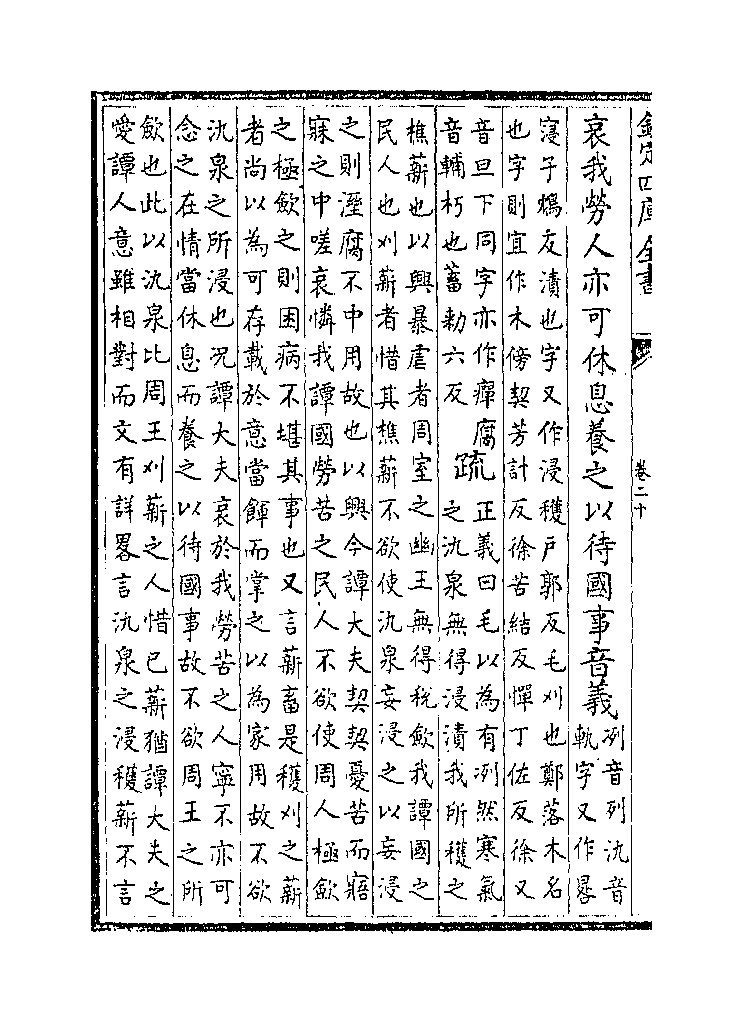 欽定四庫全書
卷二十
哀我勞人亦可休息養之以待國事音義
冽音列氿音
軌字又作晷
寖子鴆反漬也字又作浸穫戸郭反毛刈也鄭落木名
也字則宜作木傍契芳計反徐苦結反憚丁佐反徐又
音旦下同字亦作癉腐
音輔朽也蓄勑六反
疏
正義曰毛以為有冽然寒氣
之氿泉無得浸漬我所穫之
樵薪也以興暴虐者周室之幽王無得稅歛我譚國之
民人也刈薪者惜其樵薪不欲使氿泉妄浸之以妄浸
之則溼腐不中用故也以興今譚大夫契契憂苦而寤
寐之中嗟哀憐我譚國勞苦之民人不欲使周人極歛
之極歛之則困病不堪其事也又言薪畜是穫刈之薪
者尚以為可存載於意當餫而掌之以為家用故不欲
氿泉之所浸也况譚大夫哀於我勞苦之人寧不亦可
念之在情當休息而養之以待國事故不欲周王之所
歛也此以氿泉比周王刈薪之人惜已薪猶譚大夫之
愛譚人意雖相對而文有詳畧言氿泉之浸穫薪不言